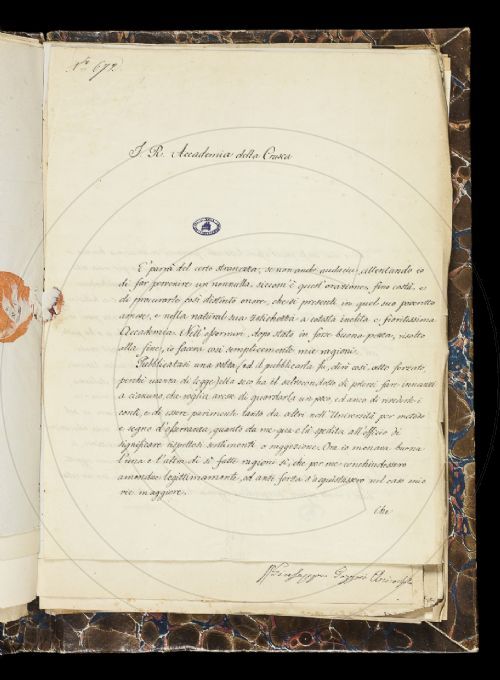 N.° 672.
I. R. Accademia della Crusca
E' parrà del certo stranezza, se non anche audacia, attentando io
di far pervenire un nonnulla, siccom'è quest'orazione, fino costì, e
di procurarle così distinto onore, che si presenti in quel suo poveretto
arnese, e nella natural sua a cotesta inclita e fioritissima
Accademia. Nell' dopo stato in forse buona pezza, risolto
alla fine, io faceva così semplicemente mie ragioni.
Pubblicatasi una volta, (ed il pubblicarla fu, dirò così, atto forzato,
perchè usanza di legge) ella seco ha il salvocondotto di potersi fare innanzi
a ciascuno, che voglia anche di guardarla un poco, ed anco di riveder le
conti, e di essere parimente tanto da altri nell' Università per metodo
e segno d'osservanza, quanto da me qua e là spedita all' officio di
significare rispettosi sentimenti o suggezione. Ora io menava buona
l'una e l'altra di sì fatte ragioni sì, che per me conchiudessero
amendue legittimamente, od anzi forza s'acquistassero nel caso mio
vie maggiore.
Che